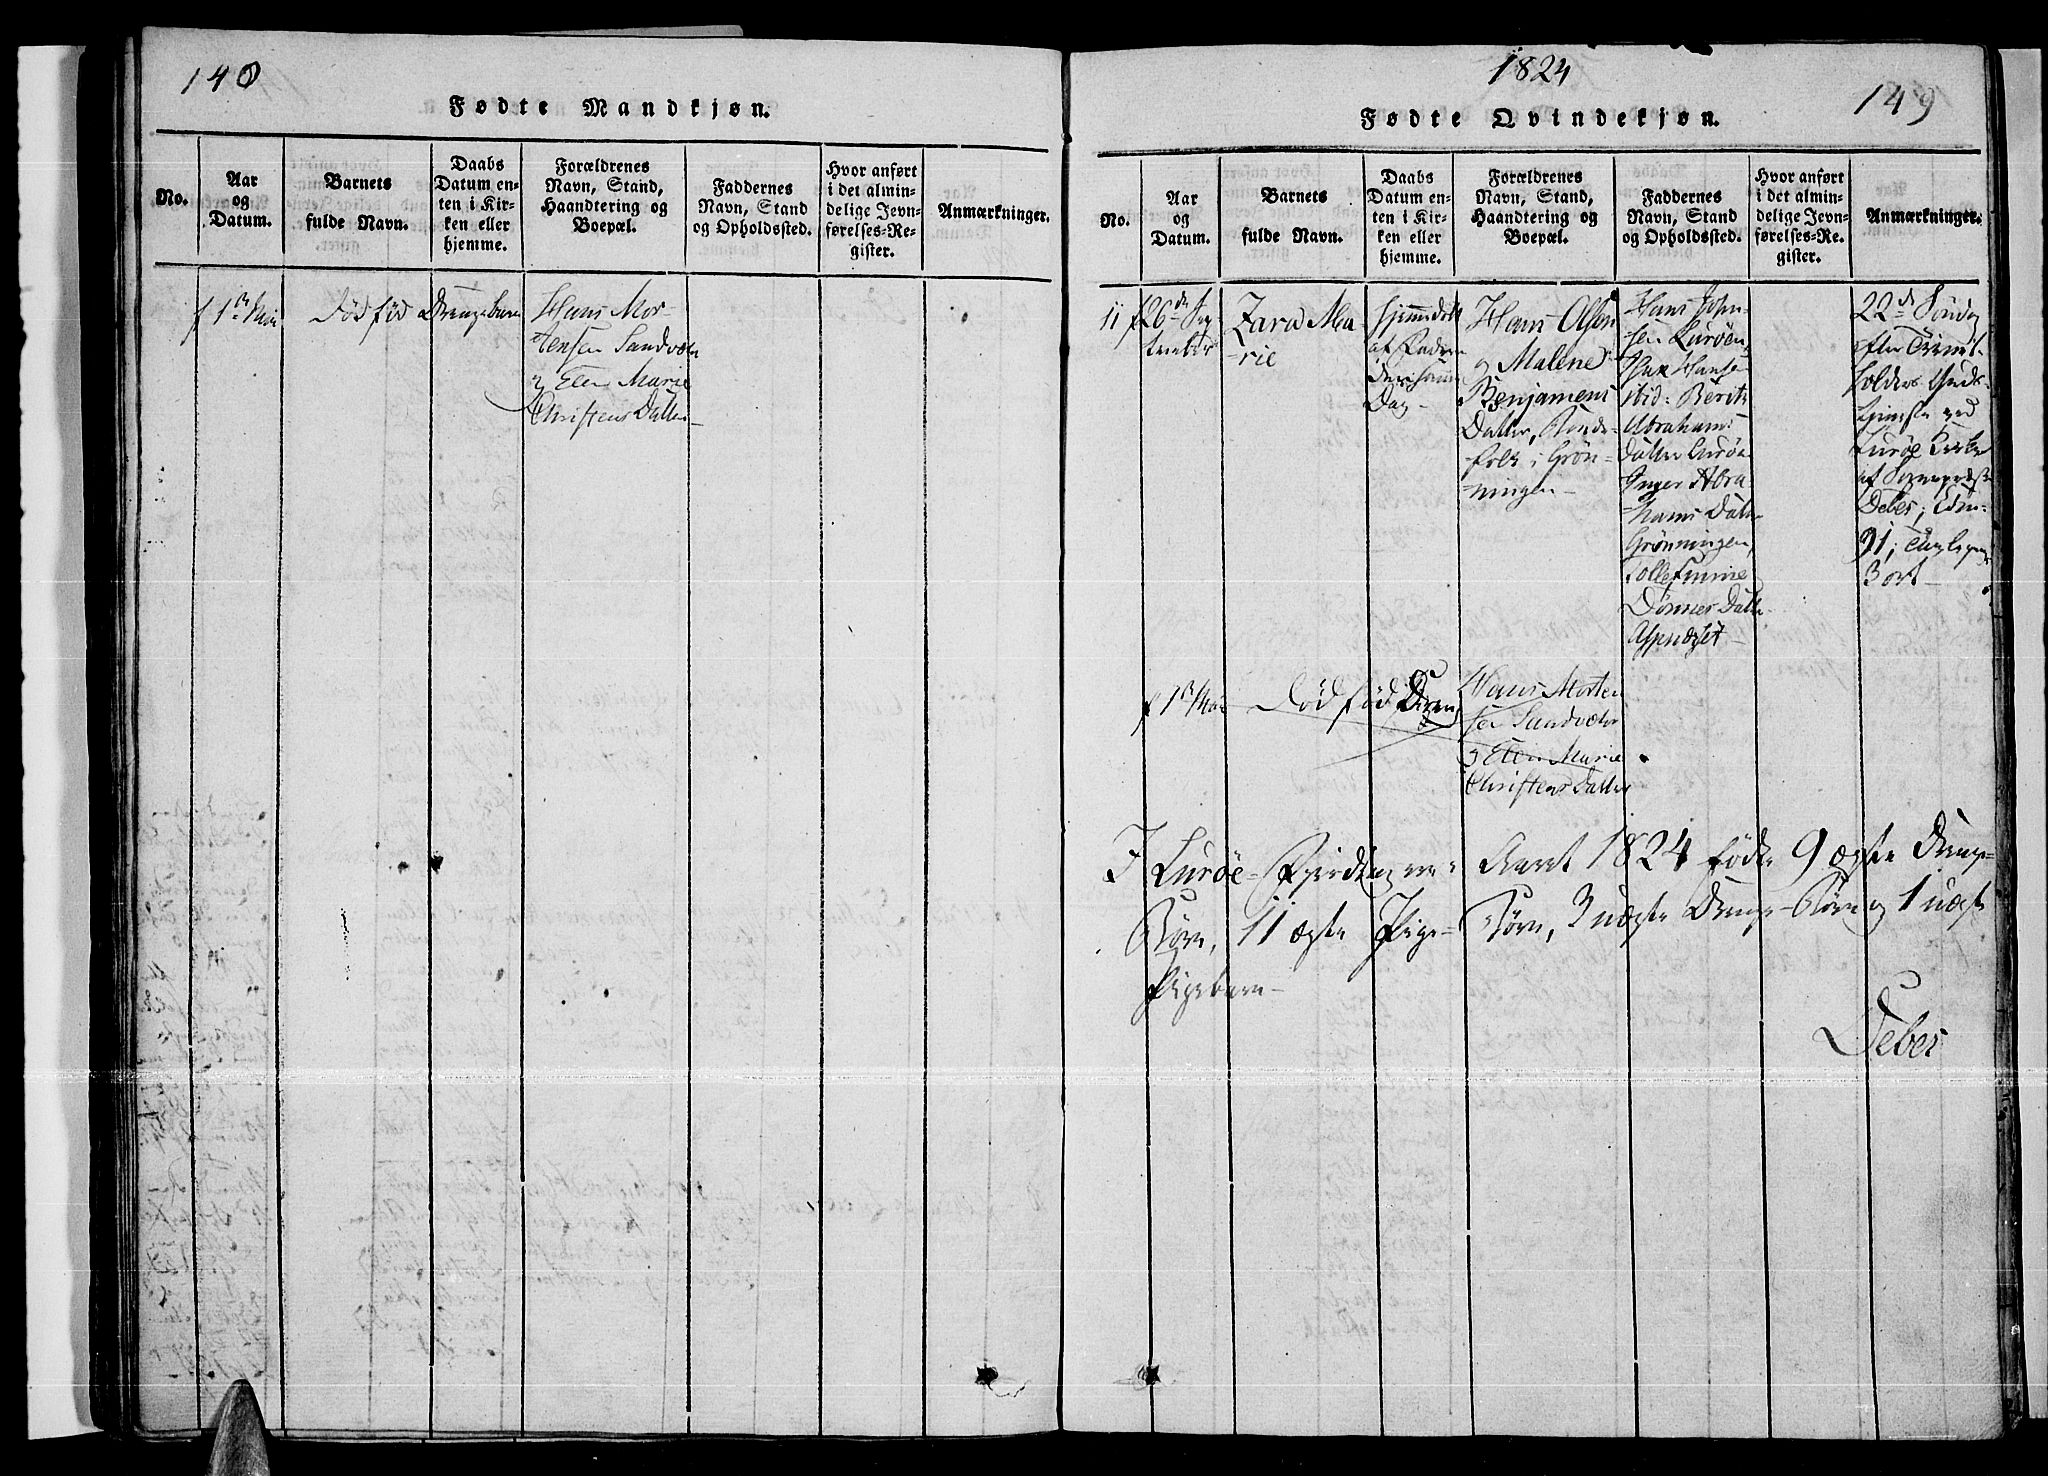 140
Fødte Mandkjøn.
No.
Aar
og
Datum.
Barnets
fulde Navn.
Daabs
Datum en-
ten i Kir-
ken eller
hjemme.
Forældrenes
Navn, Stand,
Haandtering og
Boepæl.
Faddernes
Navn, Stand
og Opholdssted.
Hvor anført
i det almin-
delige Jevn-
førelses-Re-
gister.
Anmærkninger.
Død fød Drengebarn
Hans Mor-
tensen Sandvær
Elen Marie
Christens Datter
1824
149
Fødte Qvindekjøn.
No.
Aar
og
Datum.
Barnets
fulde Navn.
Daabs
Datum en-
ten i Kir-
ken eller
hjemme.
Forældrenes
Navn, Stand,
Haandtering og
Boepæl.
Faddernes
Navn, Stand
og Opholdssted.
Hvor anført
i det almin-
delige Jevn-
førelses-Re-
gister.
Anmærkninger.
11 f 26de Sep
tember
Zara Ma-
rie
Hjemmedøbt
af Faderen
den samme
Dag
Hans Olsen
og Malene
Benjamens
Datter, Bonde-
folk i Grøn-
ningen
Hans John-
sen Lurøen,
Hans
ibid: Berit
Abrahams
Datter Lurøe
Inger Abra
hams Datter
Grønningen,
Dønnes Datter
22de Søndag
efter Trinit.
holdes Guds-
tjeneste ved
Lurøe Kirke
af Sognepræst
Debes;
3 ort
Død fød Dreng
Hans Morten
sen Sandvær
Elen Marie
Christens Datter
I Lurøe-Fjerding ere i Aaret 1824 fødte 9 ægte Drenge-
Børn, 11 ægte Pige-Børn, 3 uægte Drenge-Børn og 1 uægte
Pigebarn
Debes